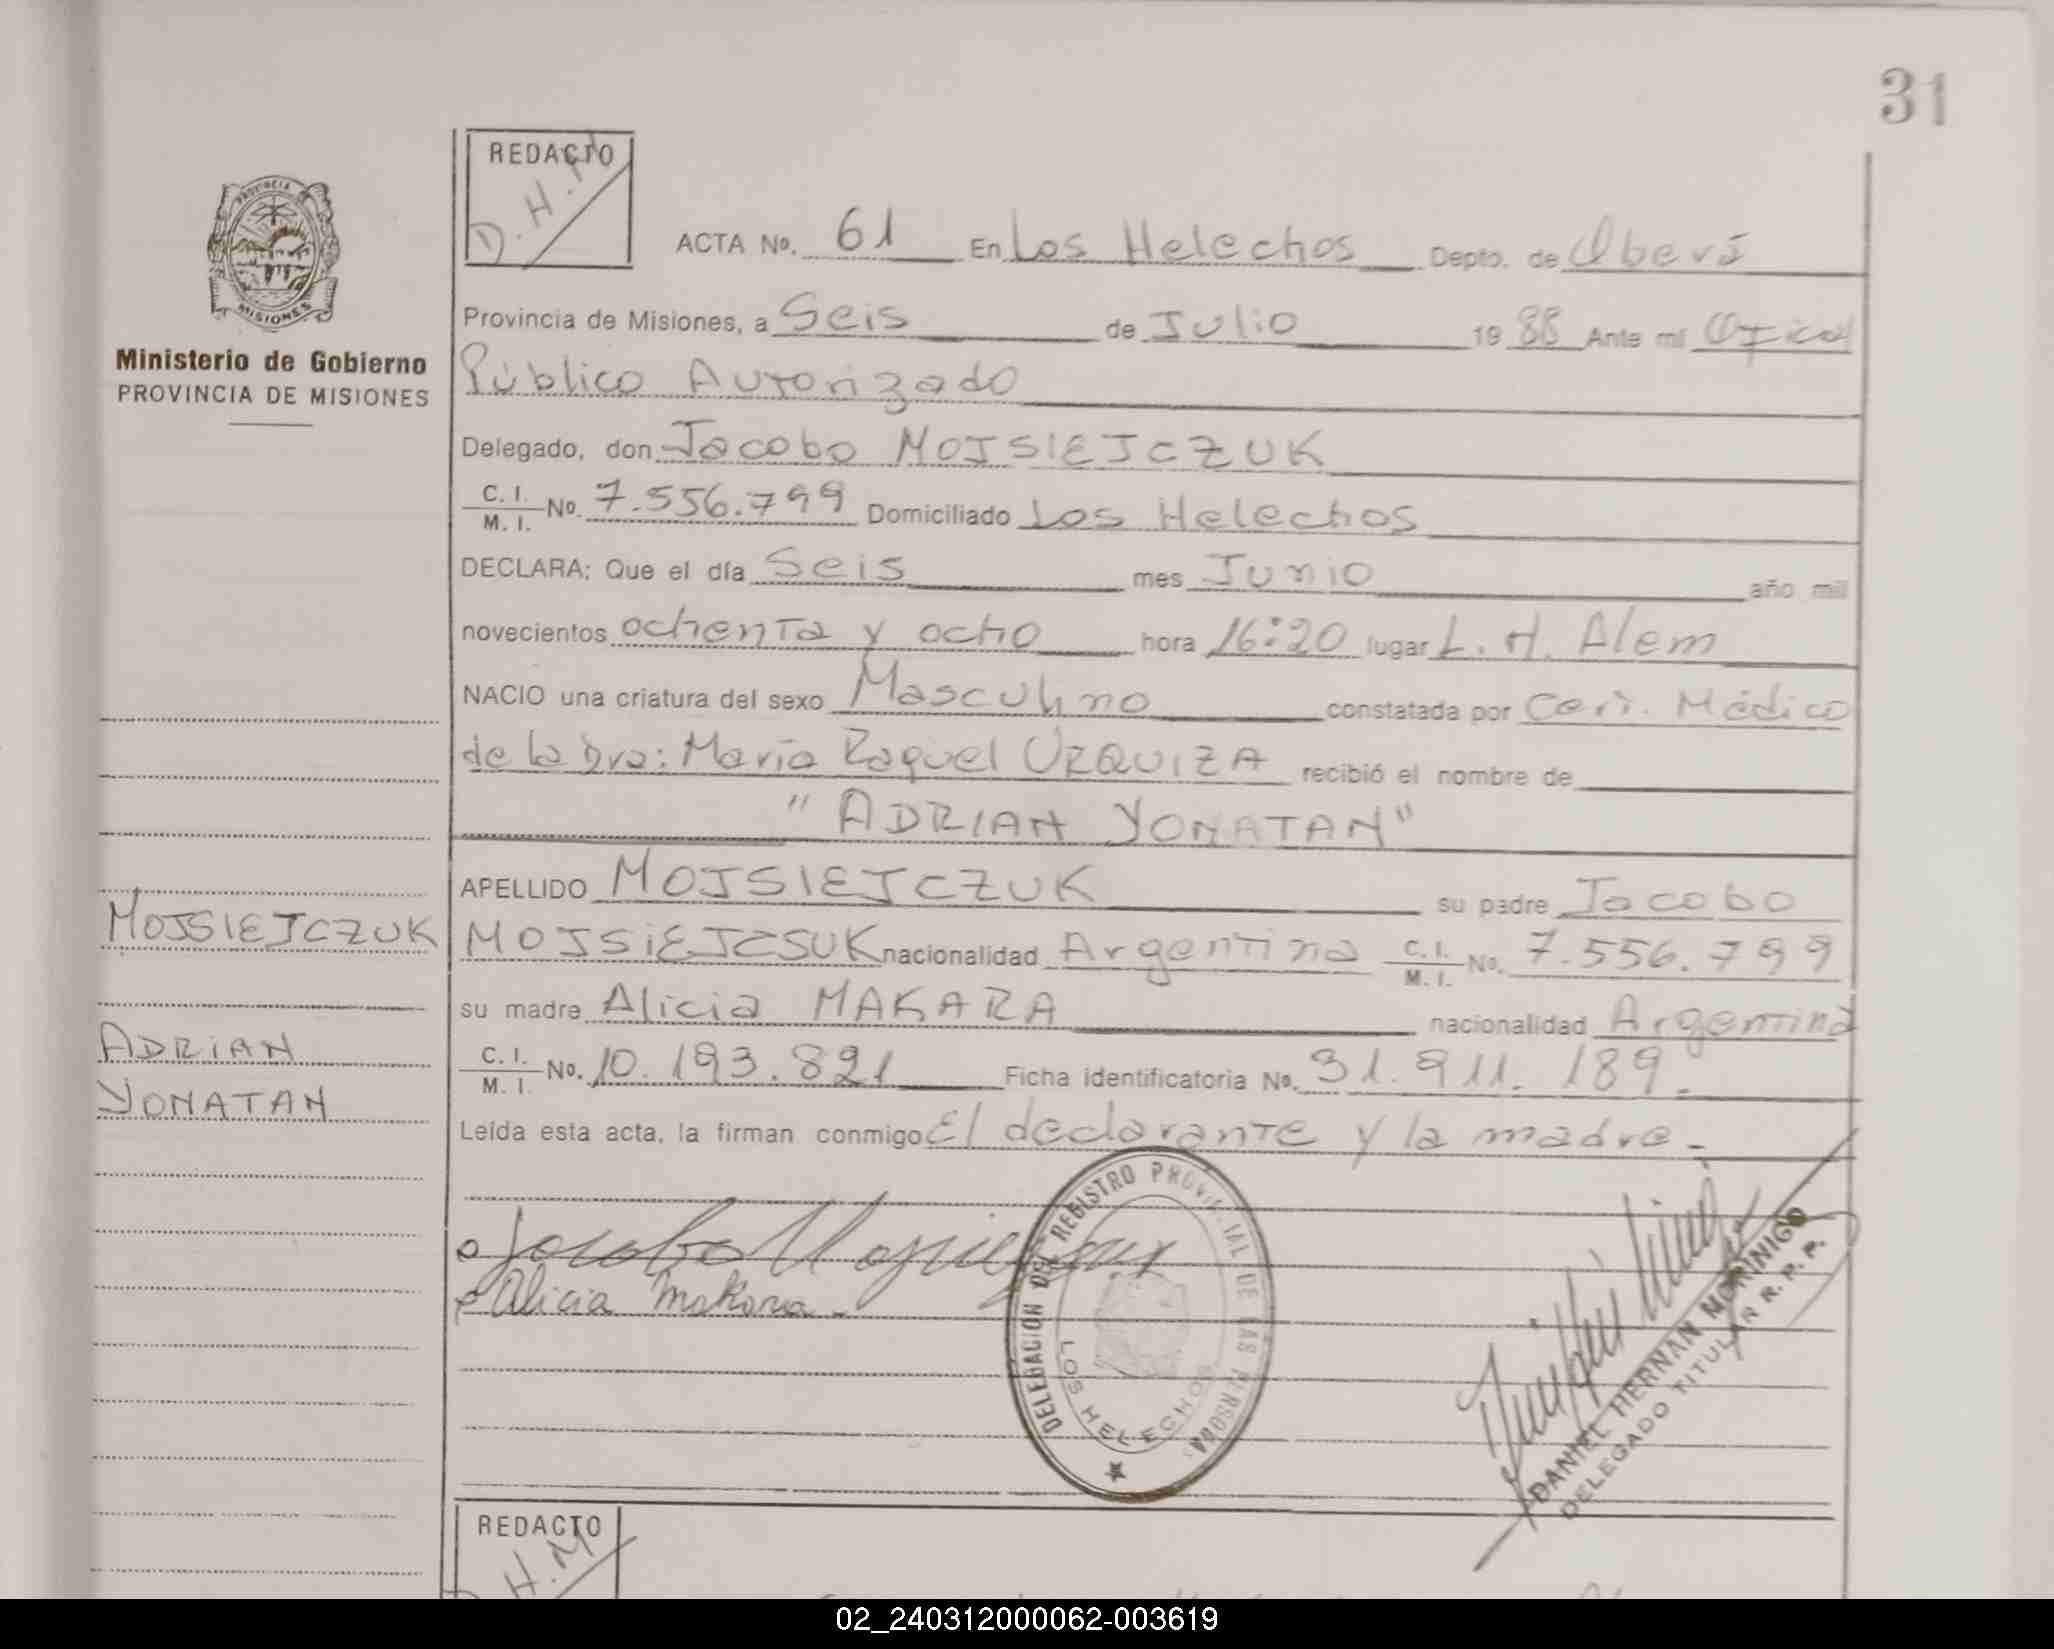 31
REDACTO
D.H.M
PROVINCIA
MISIONES
Ministerio de Gobierno
PROVINCIA DE MISIONES
ACTA No. 61 En Los Helechos Depto. de Oberá
Provincia de Misiones, a Seis de Julio 1988 Ante mí Oficial
Público Autorizado
Delegado, don Jacobo MOJSIEJCZUK
C. I. / M. I. No. 7.556.799 Domiciliado Los Helechos
DECLARA: Que el día Seis mes Junio año mil
novecientos ochenta y ocho hora 16:20 lugar L. N. Alem
NACIO una criatura del sexo Masculino constatada por Cert. Médico
de la Dra: María Raquel URQUIZA recibió el nombre de
"ADRIAN YONATAN"
APELLIDO MOJSIEJCZUK su padre Jacobo
MOJSiEJCSUK nacionalidad Argentina C. I. / M. I. No. 7.556.799
su madre Alicia MAKARA nacionalidad Argentina
C. I. / M. I. No. 10.193.821 Ficha identificatoria No. 31.911.189.-
Leída esta acta, la firman conmigo El declarante y la madre.-
MOJSIEJCZUK
ADRiAN
YONATAN
Jacobo
Alicia Makara.-
DELEGACION DEL REGISTRO PROVINCIAL DE LAS PERSONAS
LOS HELECHOS
DANIEL HERNAN MORINIGO
DELEGADO TITULAR R. P. P.
REDACTO
D.H.M
02_240312000062-003619